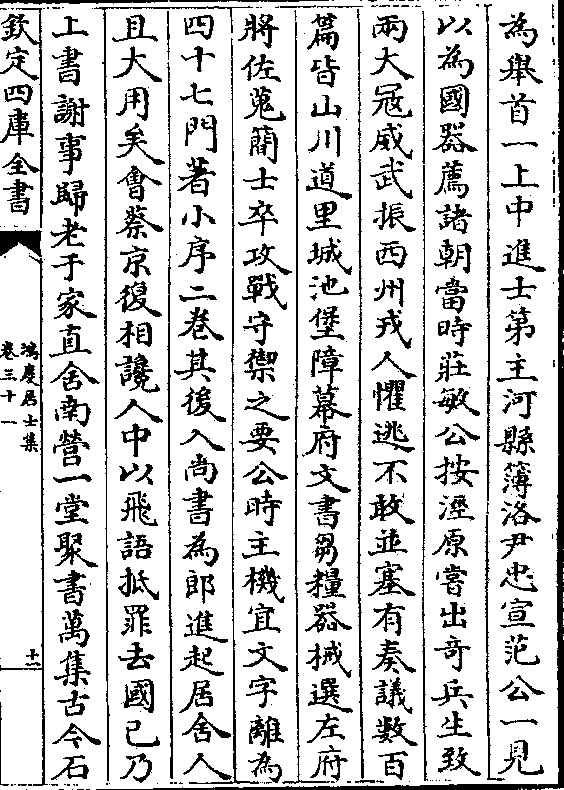 為舉首一上中進士第主河縣簿洛尹忠宣范公一見
以為國器薦諸朝當時莊敏公按涇原嘗出奇兵生致
兩大冦威武振西州戎人懼逃不敢並塞有奏議數百
篇皆山川道里城池堡障幕府文書芻糧器械選左府
將佐蒐蕳士卒攻戰守禦之要公時主機宜文字離為
四十七門著小序二卷其後入尚書為郎進起居舍人
且大用矣會蔡京復相讒人中以飛語抵罪去國已乃
上書謝事歸老于家直舍南營一堂聚書萬集古今石
欽定四庫全書
鴻慶居士集
卷三十一
十二